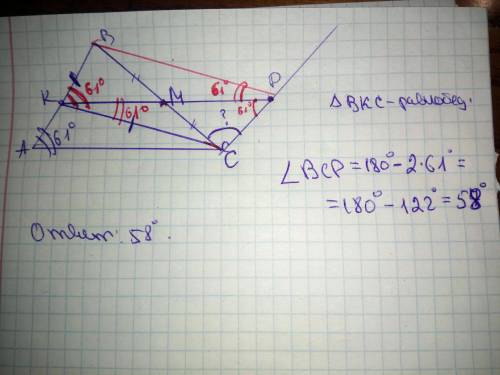 B
61° 61° P
K 61° M 61°
?
A 61° C
△BKC - равнобед.
∠BCP = 180° - 2·61° =
= 180° - 122° = 58°
Ответ: 58°.